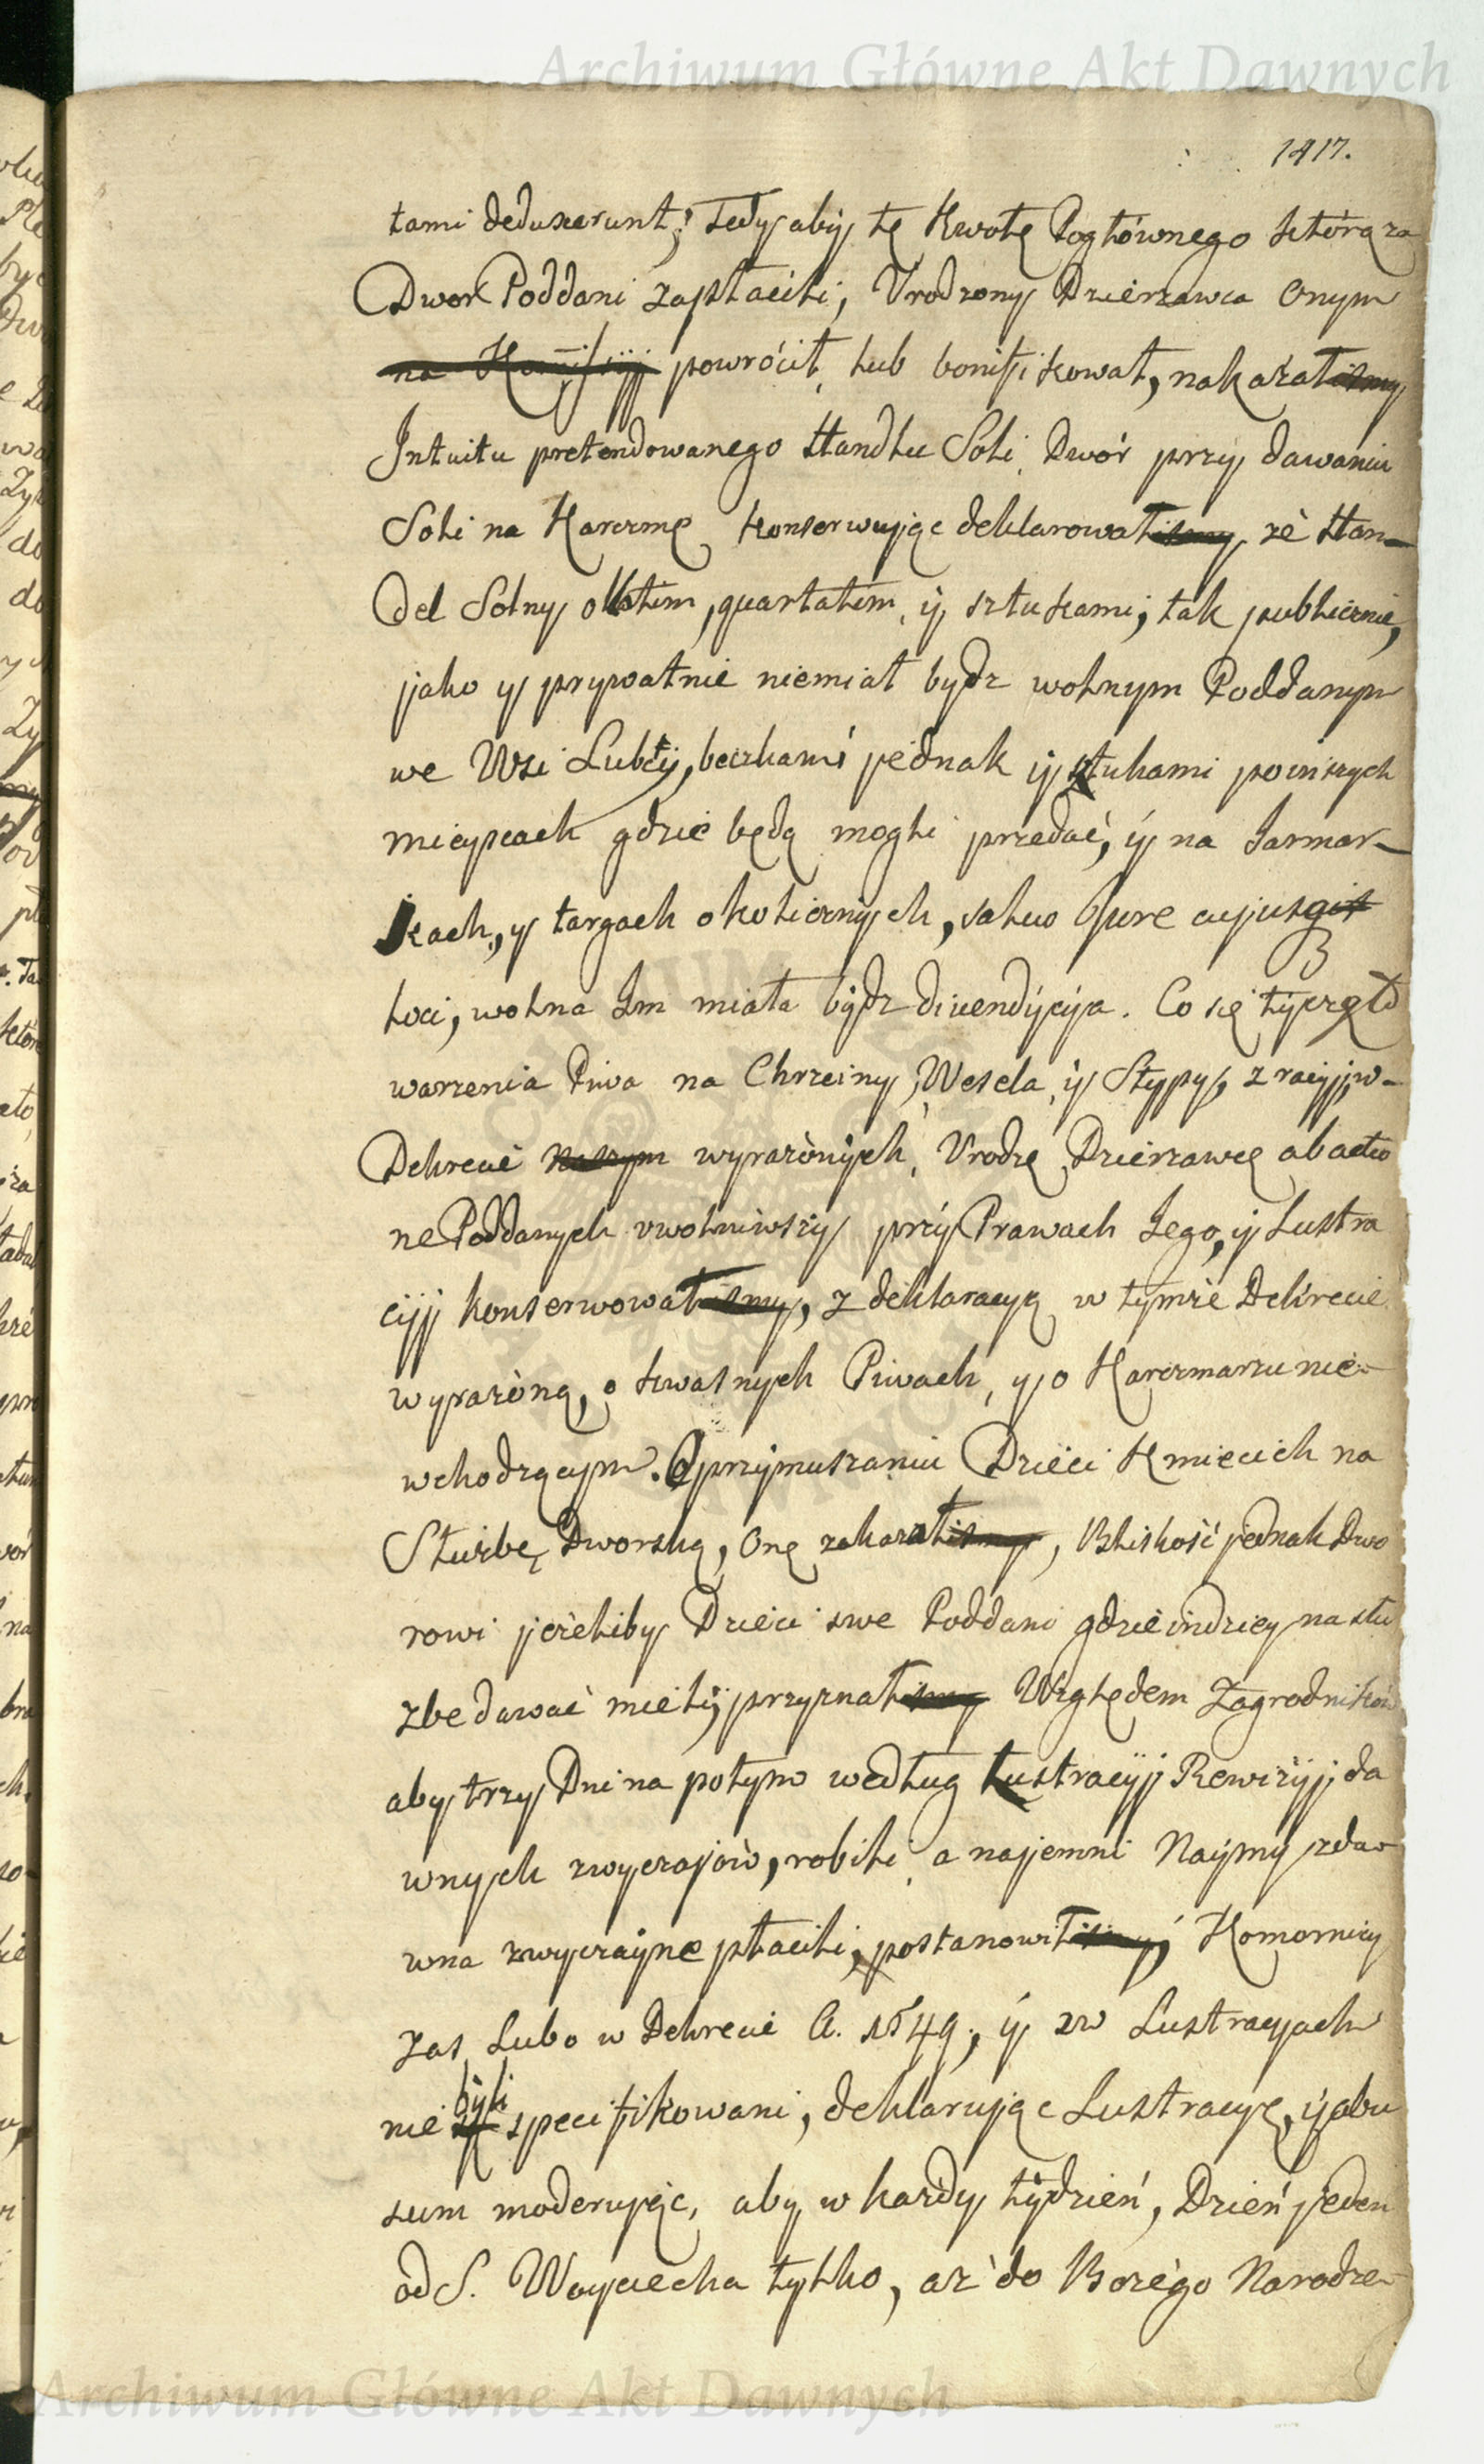 Archiwum Główne Akt Dawnych
1417.
tami deduxerunt; Tedy aby tę Kwotę Pogłównego którą za
Dwor Poddani zapłacili, Urodzony Dzierzawca onym
na Kommissyi powrócił, lub bonifikował, nakazałismy
Intuitu pretendowanego Handlu Soli, Dwór przy dawaniu
Soli na Karczmę konserwuiąc deklarowałismy, zè Han-
del Solny ołtim, quartatim, ÿ sztukami, tak publicznie,
jako y prywatnie niemiał bydz wolnym Poddanym
we Wsi Lubczÿ, beczkami jednak ÿ sztukami poinszych
mieyscach gdzie będą mogli przedać, ÿ na Jarmar-
kach, y targach okolicznych, salvo Jure cujusqis
B
loci, wolna Im miała bÿdz divendÿcÿa. Co się tÿcze
warzenia Piwa na Chrzciny, Wesela, ÿ Stypy, z racyi, w-
Dekrecie naszym wyrazònÿch, Urodzę Dzierzawcę ab actio
ne Poddanych uwolniwszy przÿ Prawach Jego, ÿ Lustra
cÿj konserwowałismy, z deklaracyą w tymże Dekrecie
wyrazòną, o kwasnych Piwach, y o Karczmarzu nie-
wchodzącym. O przÿmuszaniu Dzieci Kmiecich na
Służbę Dworską, Onę zakazałismy, Bliskość jednak Dwo
rowi jeżeliby Dzieci swe Poddani gdzieindziey na słu
zbe dawać mielÿ przyznałismy Względem Zagrodników
aby trzy Dni na potym według Lustracÿj Rewizÿj, da
wnych zwyczajòw, robili, a najemni Naÿmy zda-
wna zwyczaÿne płacili, postanowiłismy, Komornicy
zas Lubo w Dekrecie A. 1549, ÿ zw Lustracyach
byli
nie są specifikowani, deklarując Lustracyę, ÿ abu
sum moderując, aby w kazdy tÿdzień, Dzień jeden
od S. Woyciecha tylko, az do Bozègo Narodze-
Archiwum Główne Akt Dawnych